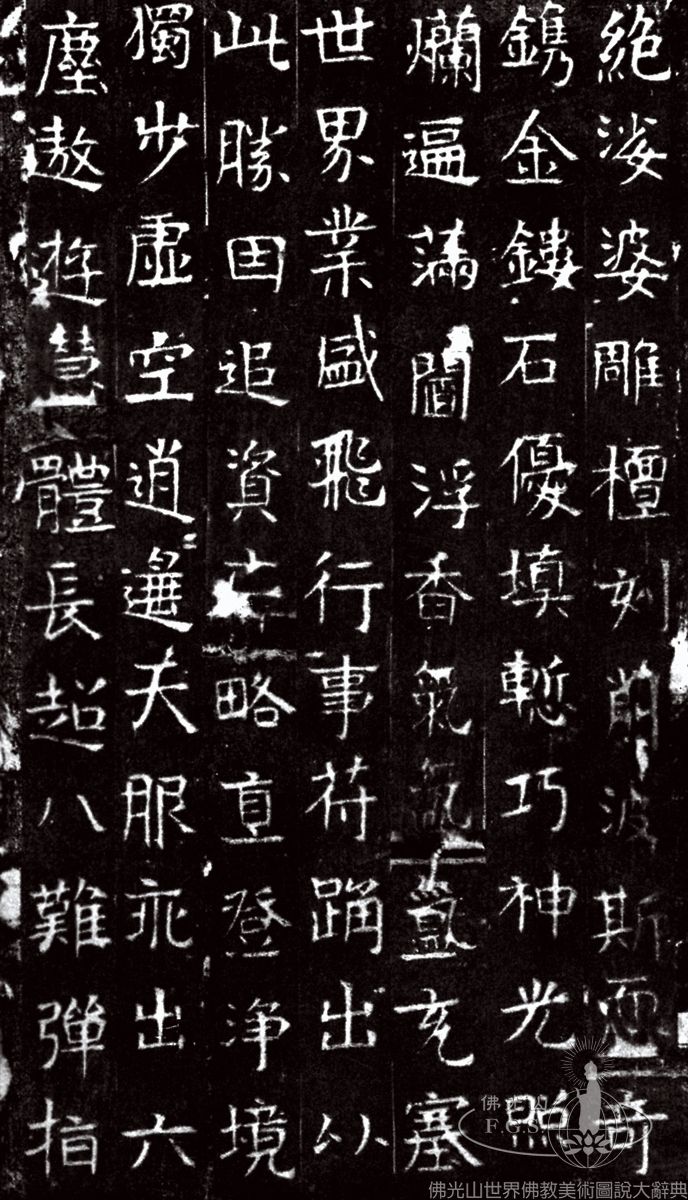 絶娑婆雕檀刻削波斯恧奇
鐫金鏤石優填慙巧神光照
爛遍滿閻浮香氣氤氳充塞
世界業盛飛行事符踊出以
此勝因追資略直登淨境
獨步虛空逍遥天服亦出六
塵遨遊慧體長超八難彈指
佛光山
F.G.S
佛光山世界佛教美術圖說大辭典